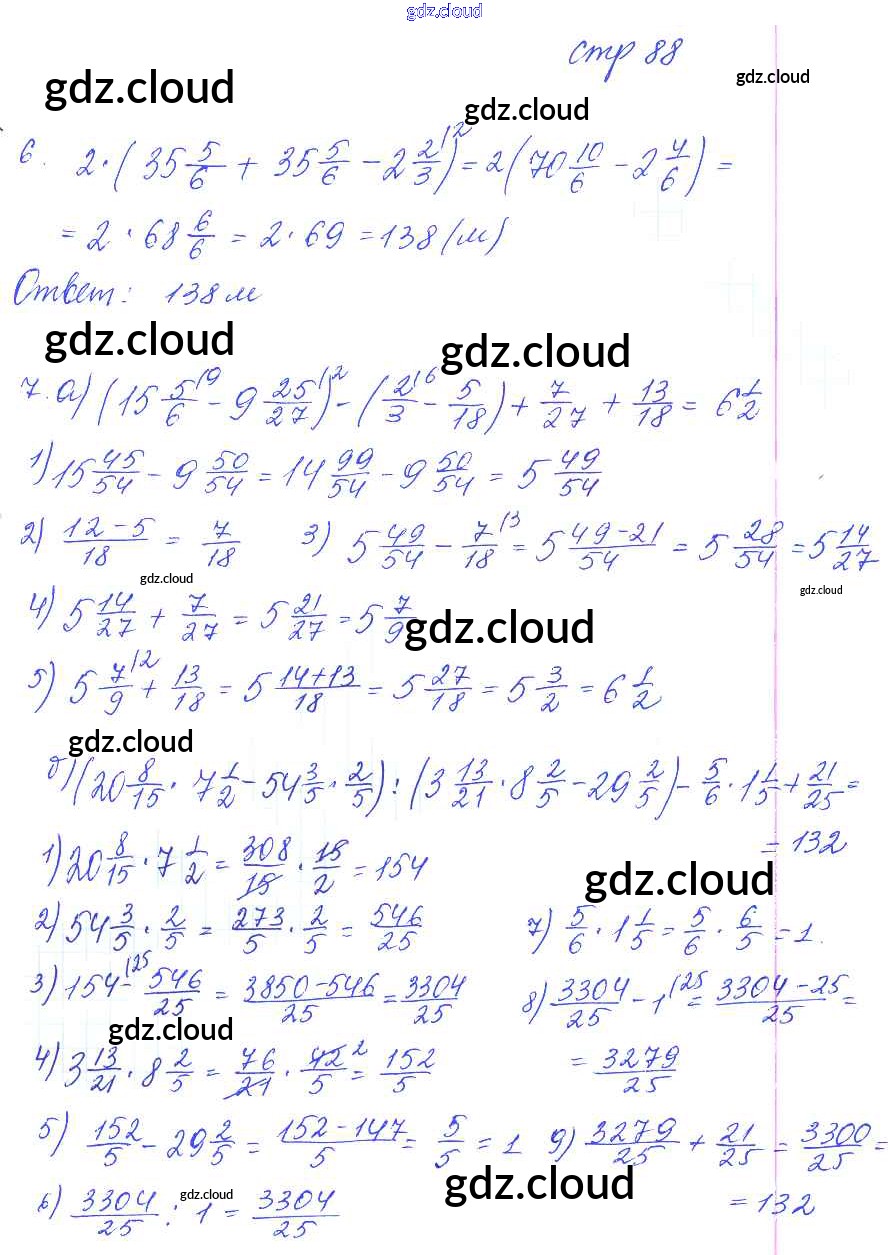 gdz.cloud
стр 88
gdz.cloud gdz.cloud gdz.cloud
6. 2·(35 5/6 + 35 5/6 − 2 2/3 |2) = 2(70 10/6 − 2 4/6) =
= 2·68 6/6 = 2·69 = 138 (м)
Ответ: 138 м
gdz.cloud gdz.cloud
7. а) (15 5/6 |9 − 9 25/27 |2) − (2/3 |6 − 5/18) + 7/27 + 13/18 = 6 1/2
1) 15 45/54 − 9 50/54 = 14 99/54 − 9 50/54 = 5 49/54
2) (12−5)/18 = 7/18 3) 5 49/54 − 7/18 |3 = 5 (49−21)/54 = 5 28/54 = 5 14/27
gdz.cloud gdz.cloud
4) 5 14/27 + 7/27 = 5 21/27 = 5 7/9
gdz.cloud
5) 5 7/9 |2 + 13/18 = 5 (14+13)/18 = 5 27/18 = 5 3/2 = 6 1/2
gdz.cloud
б) (20 8/15 · 7 1/2 − 54 3/5 · 2/5) : (3 13/21 · 8 2/5 − 29 2/5) − 5/6 · 1 1/5 + 21/25 =
= 132
1) 20 8/15 · 7 1/2 = 308/15 · 15/2 = 154
gdz.cloud
2) 54 3/5 · 2/5 = 273/5 · 2/5 = 546/25
3) 154 |25 − 546/25 = (3850−546)/25 = 3304/25
gdz.cloud
4) 3 13/21 · 8 2/5 = 76/21 · 42/5 2 = 152/5
5) 152/5 − 29 2/5 = (152−147)/5 = 5/5 = 1
6) 3304/25 : 1 = 3304/25
gdz.cloud
7) 5/6 · 1 1/5 = 5/6 · 6/5 = 1.
8) 3304/25 − 1 |25 = (3304−25)/25 =
= 3279/25
9) 3279/25 + 21/25 = 3300/25 =
= 132
gdz.cloud